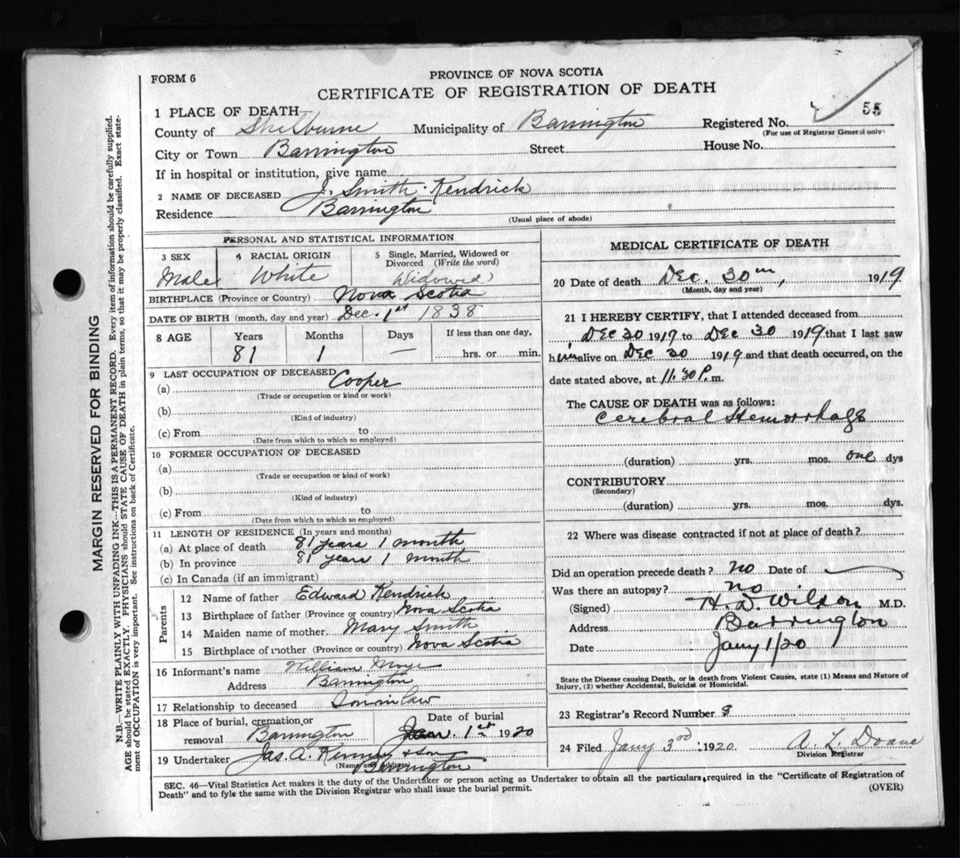 FORM 6
PROVINCE OF NOVA SCOTIA
CERTIFICATE OF REGISTRATION OF DEATH
55
1 PLACE OF DEATH
County of Shelburne Municipality of Barrington Registered No.
(For use of Registrar General only)
City or Town Barrington Street House No.
If in hospital or institution, give name
2 NAME OF DECEASED J. Smith Kendrick
Residence Barrington
(Usual place of abode)
MARGIN RESERVED FOR BINDING
N.B.—WRITE PLAINLY WITH UNFADING INK—THIS IS A PERMANENT RECORD. Every item of information should be carefully supplied.
AGE should be stated EXACTLY. PHYSICIANS should STATE CAUSE OF DEATH in plain terms, so that it may be properly classified. Exact state-
ment of OCCUPATION is very important. See instructions on back of Certificate.
PERSONAL AND STATISTICAL INFORMATION
3 SEX 4 RACIAL ORIGIN 5 Single, Married, Widowed or
Divorced (Write the word)
Male White Widowed
BIRTHPLACE (Province or Country) Nova Scotia
DATE OF BIRTH (month, day and year) Dec. 1st 1838
8 AGE Years Months Days If less than one day,
81 1 — hrs. or min.
9 LAST OCCUPATION OF DECEASED
(a) Cooper
(Trade or occupation or kind or work)
(b)
(Kind of industry)
(c) From to
(Date from which to which so employed)
10 FORMER OCCUPATION OF DECEASED
(a)
(Trade or occupation or kind of work)
(b)
(Kind of industry)
(c) From to
(Date from which to which so employed)
11 LENGTH OF RESIDENCE (In years and months)
(a) At place of death 81 years 1 month
(b) In province 81 years 1 month
(c) In Canada (if an immigrant)
Parents
12 Name of father Edward Kendrick
13 Birthplace of father (Province or country) Nova Scotia
14 Maiden name of mother Mary Smith
15 Birthplace of mother (Province or country) Nova Scotia
16 Informant's name William
Address Barrington
17 Relationship to deceased Son in law
18 Place of burial, cremation or Date of burial
removal Barrington Jan. 1st 1920
19 Undertaker Jas. A. Kenney & Son
(Name and address) Barrington
MEDICAL CERTIFICATE OF DEATH
20 Date of death Dec. 30th, 1919
(Month, day and year)
21 I HEREBY CERTIFY, that I attended deceased from
Dec 30 1919 to Dec 30 1919 that I last saw
him alive on Dec 30 1919 and that death occurred, on the
date stated above, at 11.30 P. m.
The CAUSE OF DEATH was as follows:
Cerebral Hemorrhage
(duration) yrs. mos. one dys
CONTRIBUTORY
(Secondary)
(duration) yrs. mos. dys.
22 Where was disease contracted if not at place of death?
Did an operation precede death? No Date of
Was there an autopsy? No
(Signed) H. D. Wilson M.D.
Address Barrington
Date Jany 1/20
State the Disease causing Death, or in death from Violent Causes, state (1) Means and Nature of
Injury, (2) whether Accidental, Suicidal or Homicidal.
23 Registrar's Record Number 8
24 Filed Jany 3rd 1920. A. L. Doane
Division Registrar
SEC. 46—Vital Statistics Act makes it the duty of the Undertaker or person acting as Undertaker to obtain all the particulars required in the "Certificate of Registration of
Death" and to fyle the same with the Division Registrar who shall issue the burial permit.
(OVER)